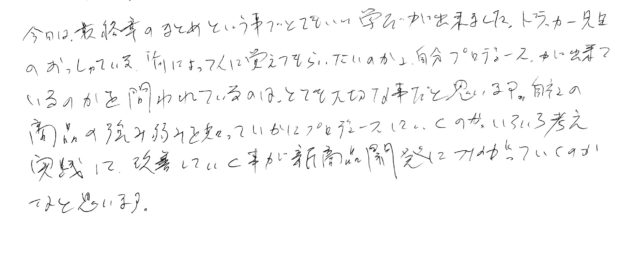 今日は、最終章のまとめという事でとてもいい学びが出来ました。ドラッカー先生
のおっしゃっている「何によって人に覚えてもらいたいのか」、自分プロデュースが出来て
いるのかを問われているのは、とても大切な事だと思います。自社の
商品の強み弱みを知っていかにプロデュースしていくのか、いろいろ考え
実践して、改善していく事が新商品開発につながっていくのか
なと思います。